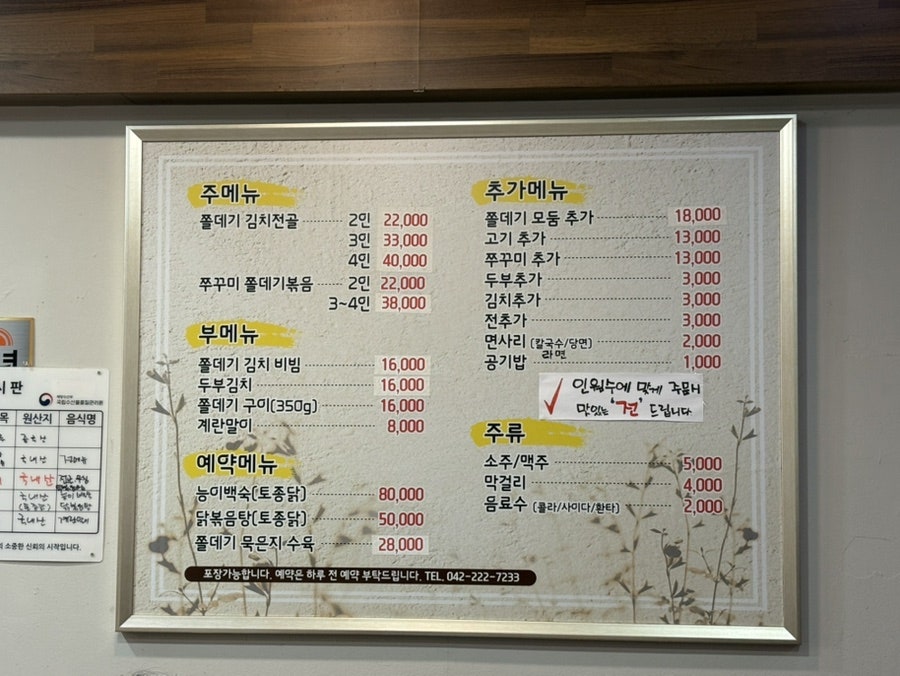 주메뉴
쫄데기 김치전골 2인 22,000
3인 33,000
4인 40,000
쭈꾸미 쫄데기볶음 2인 22,000
3~4인 38,000
부메뉴
쫄데기 김치 비빔 16,000
두부김치 16,000
쫄데기 구이(350g) 16,000
계란말이 8,000
예약메뉴
능이백숙(토종닭) 80,000
닭볶음탕(토종닭) 50,000
쫄데기 묵은지 수육 28,000
추가메뉴
쫄데기 모둠 추가 18,000
고기 추가 13,000
쭈꾸미 추가 13,000
두부추가 3,000
김치추가 3,000
전추가 3,000
면사리 (칼국수/당면) 2,000
라면
공기밥 1,000
인원수에 맞게 주문시
맛있는 '전' 드립니다
주류
소주/맥주 5,000
막걸리 4,000
음료수 (콜라/사이다/환타) 2,000
포장가능합니다. 예약은 하루 전 예약 부탁드립니다. TEL. 042-222-7233
시판
국립농산물품질관리원
목 원산지 음식명
국내산
국내산
국내산
국내산
계란말이
의 소중한 신뢰의 시작입니다.